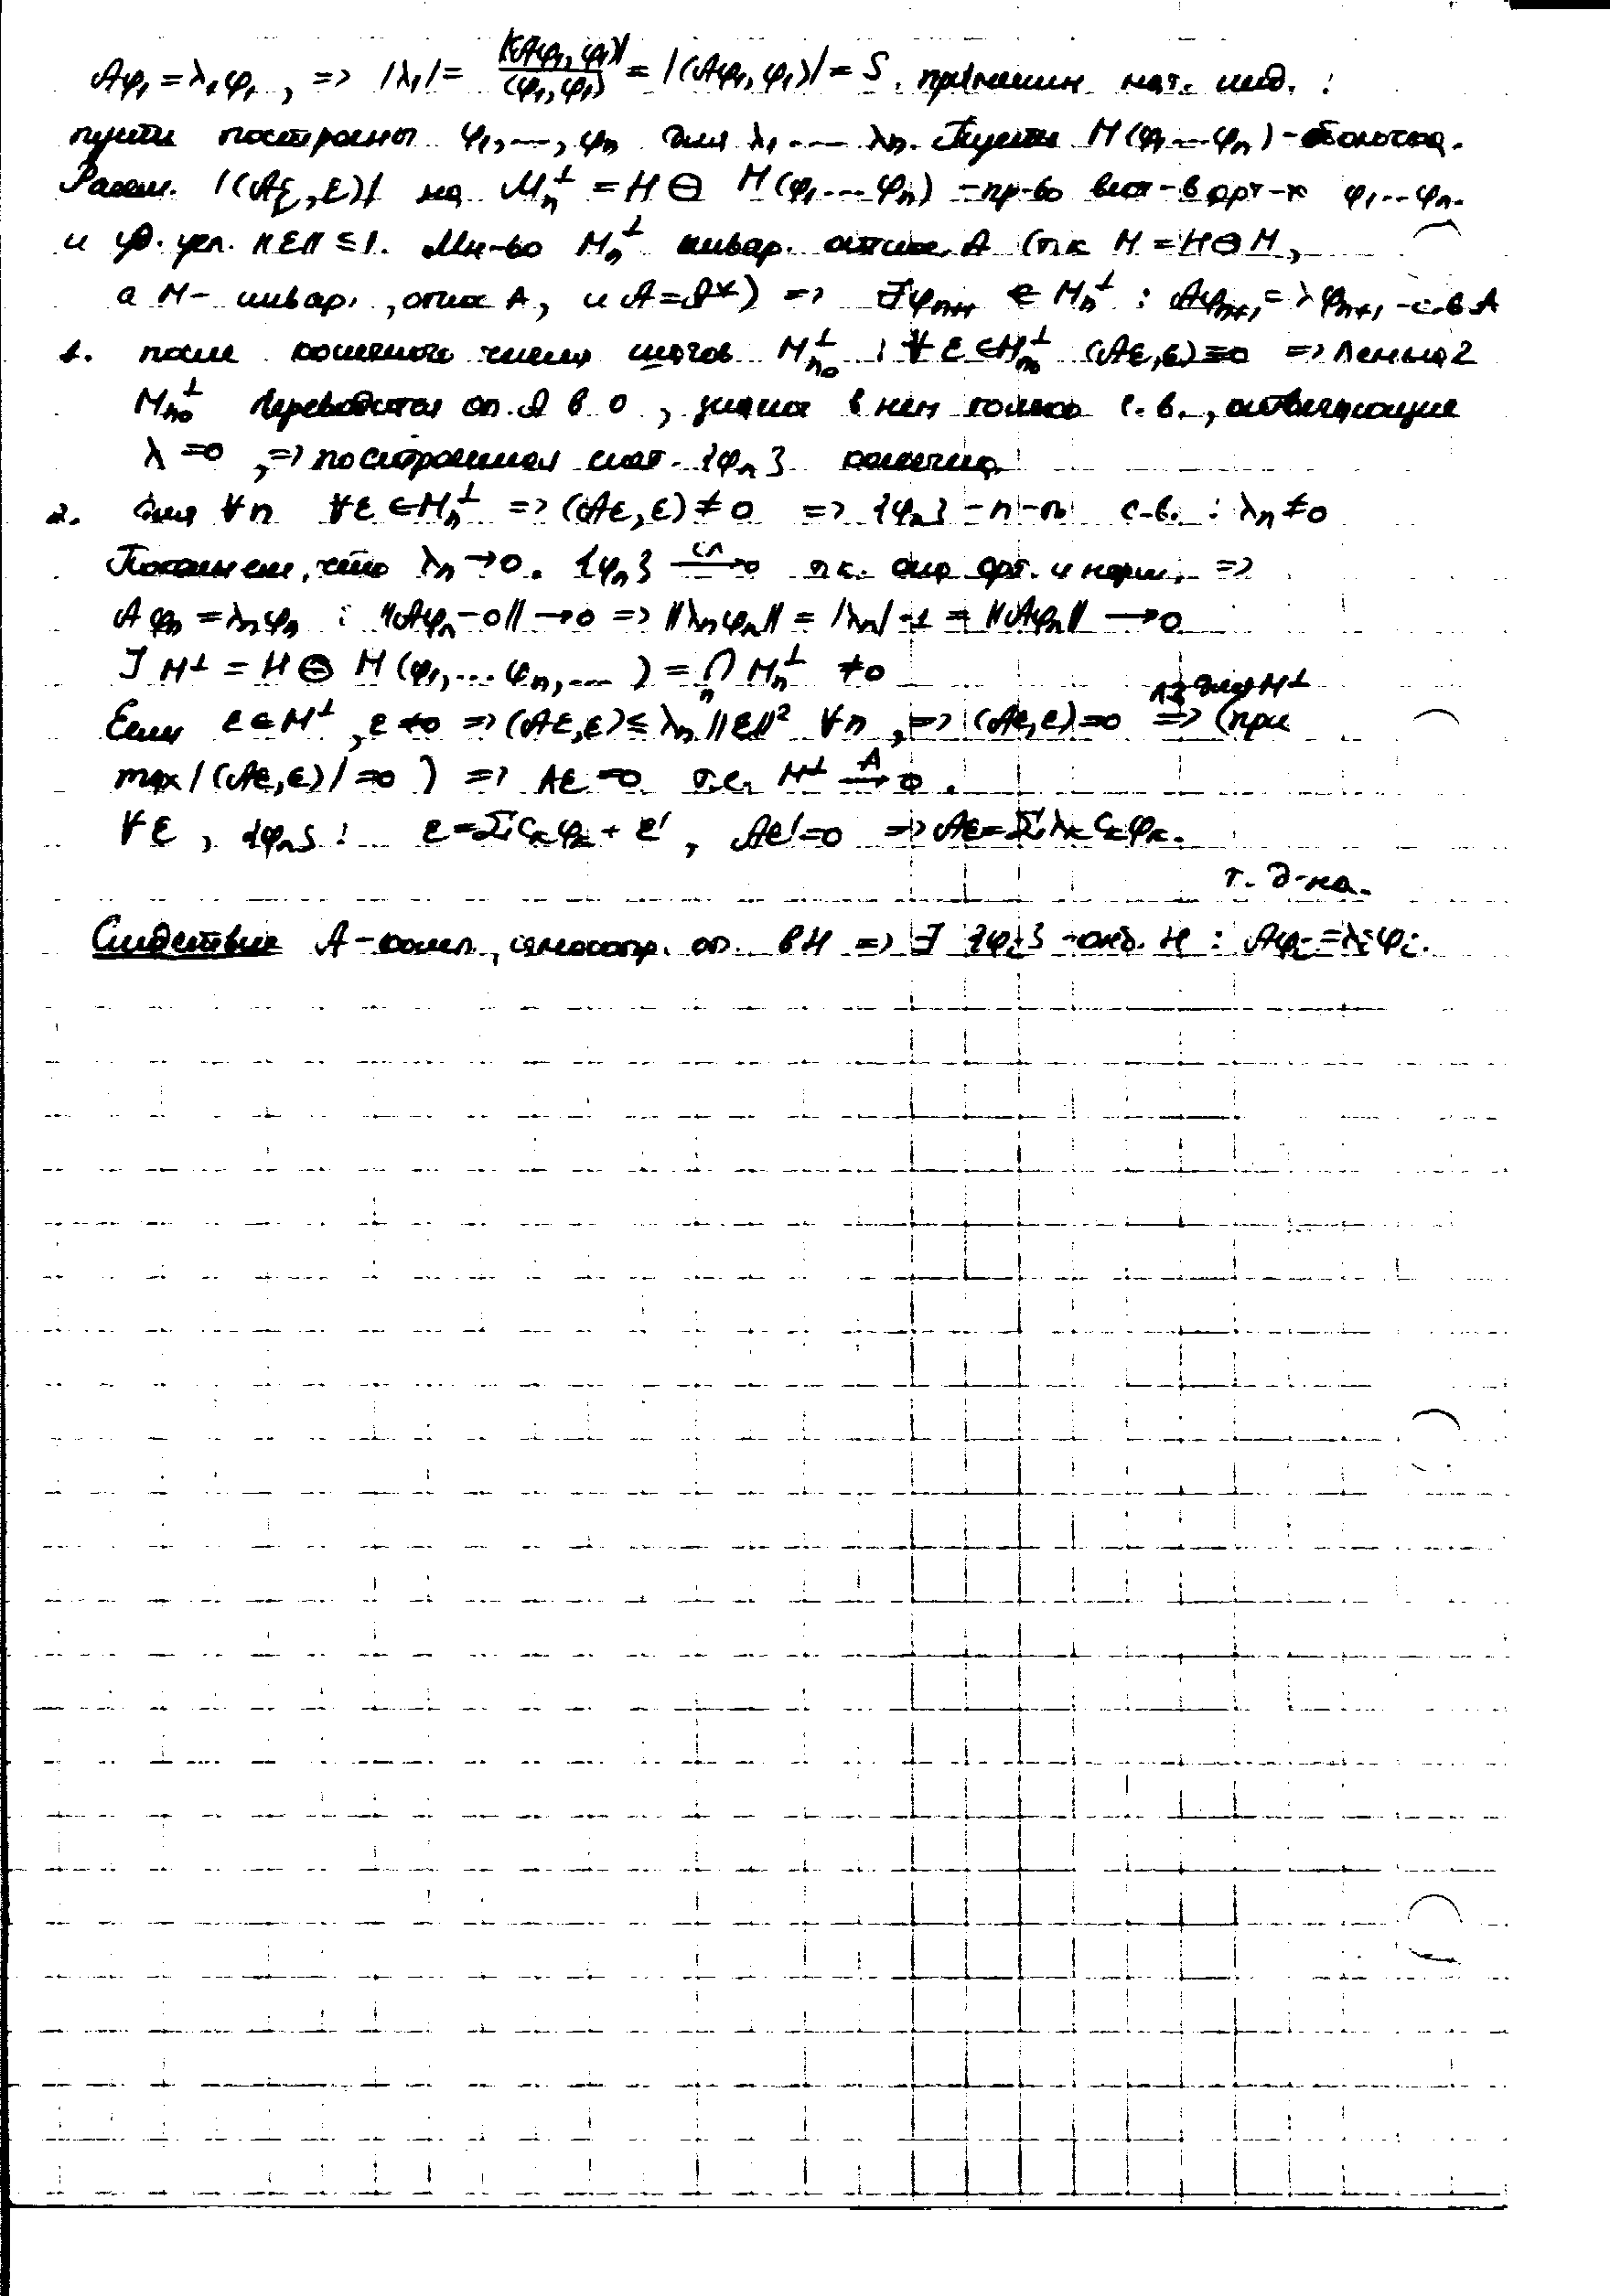 Aφ₁ = λ₁φ₁, => |λ₁| = |(Aφ₁, φ₁)| / (φ₁, φ₁) = |(Aφ₁, φ₁)| = S. применим мат. инд. :
пусти построены φ₁, ..., φₙ для λ₁ ... λₙ. Пусть M(φ₁...φₙ) - оболочка.
Рассм. |(Aξ, ξ)| на Mₙ^⊥ = H ⊖ M(φ₁...φₙ) - пр-во вект-в орт-х φ₁...φₙ.
и уд. усл. ||ξ|| ≤ 1. Мн-во Mₙ^⊥ инвар. относ. A (т.к M = H ⊖ M,
а M - инвар., отнс A, и A = A*) => ∃φₙ₊₁ ∈ Mₙ^⊥ : Aφₙ₊₁ = λφₙ₊₁ - с.в A
1. после конечного числа шагов Mₙ₀^⊥ : ∀ ξ ∈ Mₙ₀^⊥ (Aξ, ξ) = 0 => Лемма 2
Mₙ₀^⊥ переводится оп. A в 0, значит в нем только с.в., отвечающие
λ = 0, => построенная сист. {φₙ} конечна
2. для ∀n ∀ξ ∈ Mₙ^⊥ => (Aξ, ξ) ≠ 0 => {φₙ} - п-ть с.в. : λₙ ≠ 0
Покажем, что λₙ → 0. {φₙ} —сл→ 0 т.к. она орт. и норм. =>
Aφₙ = λₙφₙ : ||Aφₙ - 0|| → 0 => ||λₙφₙ|| = |λₙ|·1 = ||Aφₙ|| → 0
] M^⊥ = H ⊖ M(φ₁, ... φₙ, ... ) = ⋂ₙ Mₙ^⊥ ≠ 0
Если ξ ∈ M^⊥, ξ ≠ 0 => (Aξ, ξ) ≤ λₙ ||ξ||² ∀n, => (Aξ, ξ) = 0 => для M^⊥ (при
max |(Aξ, ξ)| = 0 ) => Aξ = 0 т.е. M^⊥ —A→ 0.
∀ξ, {φₙ} : ξ = Σ cₖφₖ + ξ', Aξ' = 0 => Aξ = Σ λₖ cₖφₖ.
т. д-на.
Следствие A - комп., самосопр. оп. в H => ∃ {φᵢ} - онб. H : Aφᵢ = λᵢφᵢ.